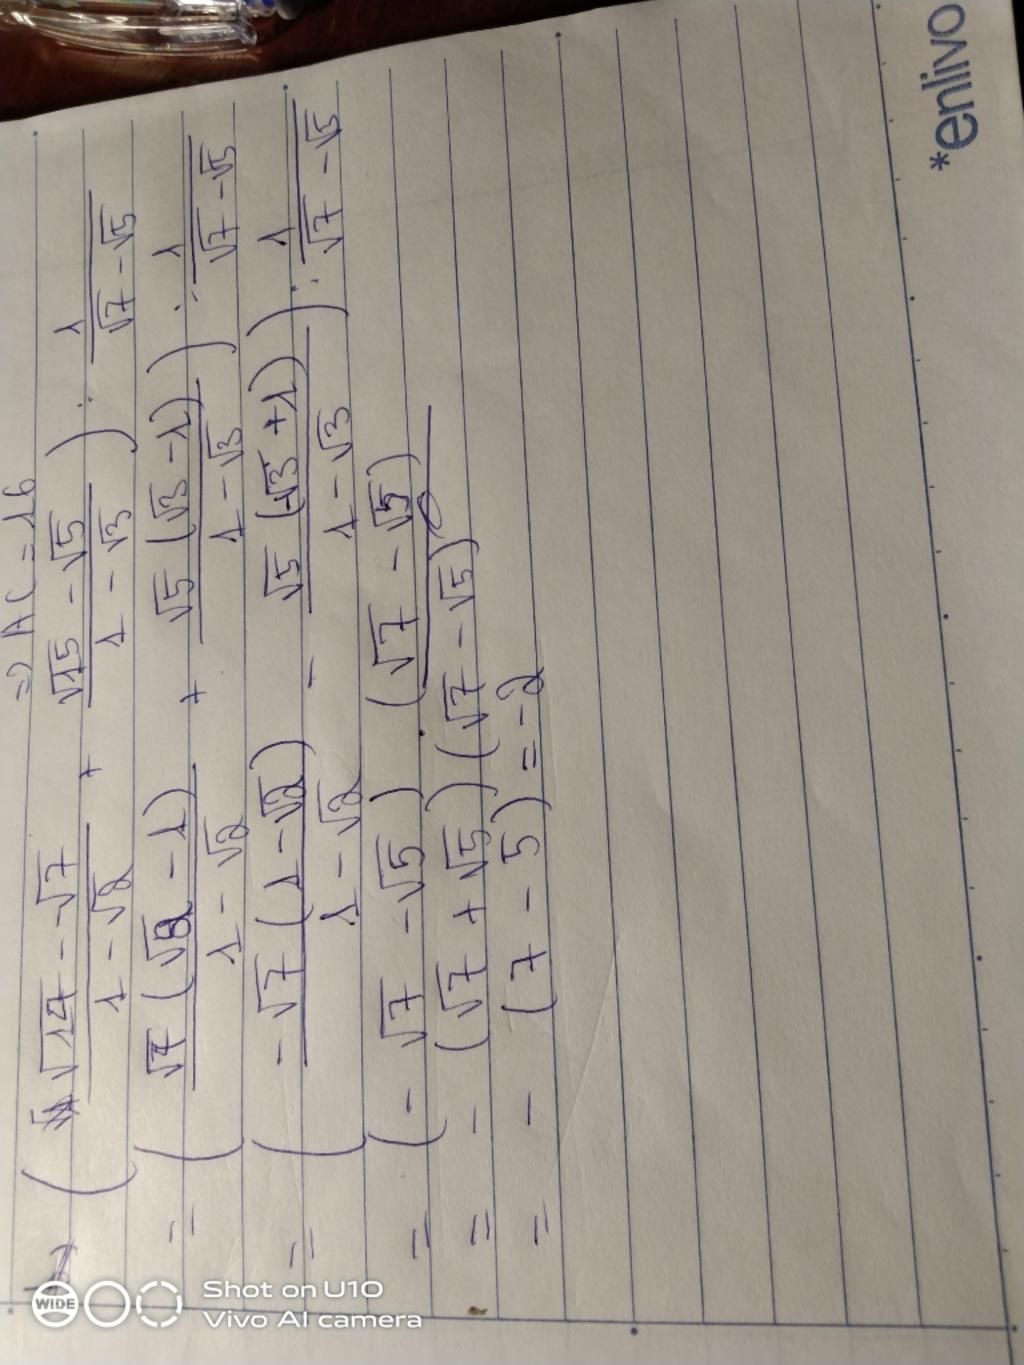 => AC = 16
b) (√14 - √7 / 1 - √2 + √15 - √5 / 1 - √3) : 1 / √7 - √5
= (√7 (√2 - 1) / 1 - √2 + √5 (√3 - 1) / 1 - √3) : 1 / √7 - √5
= (-√7 (1 - √2) / 1 - √2 - √5 (-√3 + 1) / 1 - √3) : 1 / √7 - √5
= (- √7 - √5) . (√7 - √5)
= - (√7 + √5) (√7 - √5)
= - (7 - 5) = -2
*enlivo
WIDE
Shot on U10
Vivo AI camera